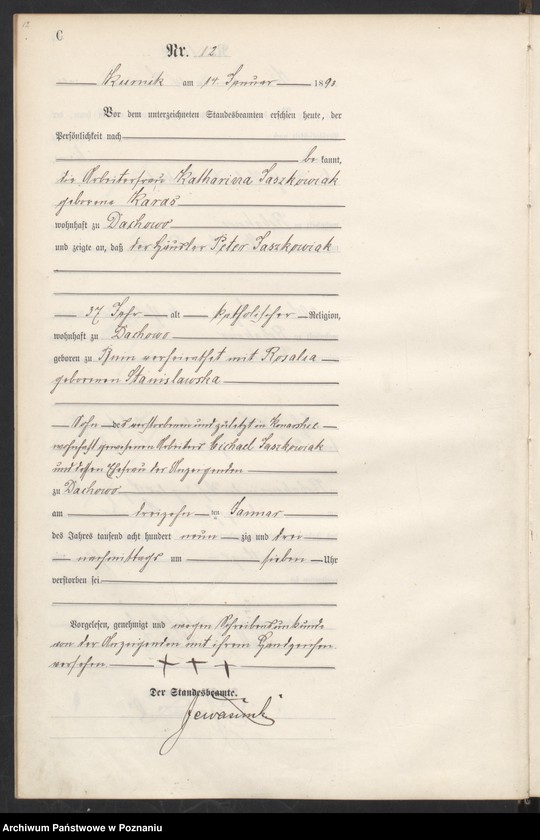 12
C
Nr. 12
Kurnik am 14 Januar 1893
Vor dem unterzeichneten Standesbeamten erschien heute, der
Persönlichkeit nach
be kannt,
die Arbeiterfrau Katharina Jaszkowiak
geborene Karas
wohnhaft zu Dachowo
und zeigte an, daß der Häusler Peter Jaszkowiak
37 Jahr alt katholischer Religion,
wohnhaft zu Dachowo
geboren zu Bnin verheirathet mit Rosalia
geborenen Stanislawska
Sohn des verstorbenen und zuletzt in
wohnhaft gewesenen Arbeiters Michael Jaszkowiak
und dessen Ehefrau der Anzeigenden
zu Dachowo
am dreizehn ten Januar
des Jahres tausend acht hundert neun zig und drei
nachmittags um sieben Uhr
verstorben sei
Vorgelesen, genehmigt und wegen Schreibensunkunde
von der Anzeigenden mit ihrem Handzeichen
versehen + + +
Der Standesbeamte.
Archiwum Państwowe w Poznaniu